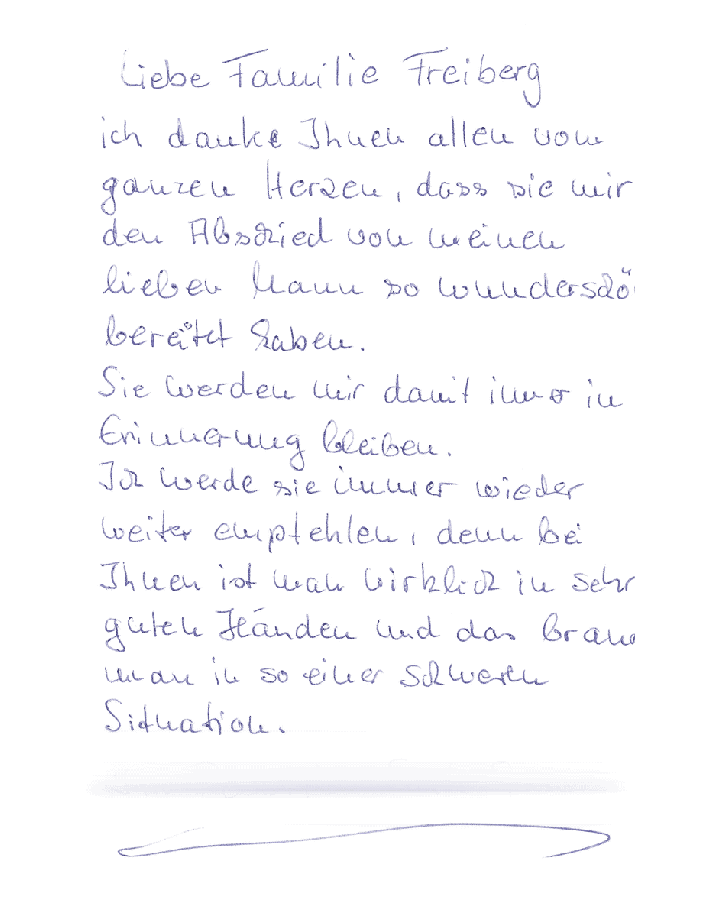 Liebe Familie Freiberg
ich danke Ihnen allen vom
ganzen Herzen, dass sie mir
den Abschied von meinen
lieben Mann so wunderschö
bereitet haben.
Sie werden mir damit immer in
Erinnerung bleiben.
Ich werde sie immer wieder
weiter empfehlen, denn bei
Ihnen ist man wirklich in sehr
guten Händen und das brau
man in so einer schweren
Situation.